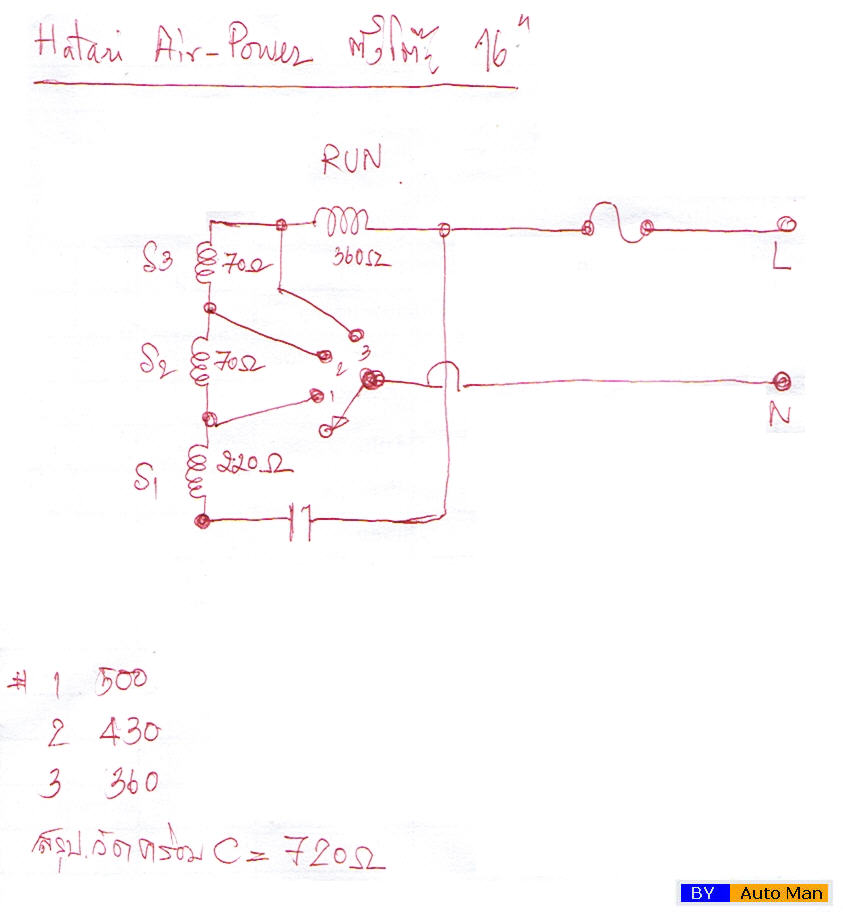 Hatari Air-Power ตั้งโต๊ะ 16"
RUN
S3 70Ω
360Ω
L
S2 70Ω
3
2
1
N
S1 220Ω
# 1 500
2 430
3 360
สรุป.วัดคร่อม C = 720Ω
BY Auto Man